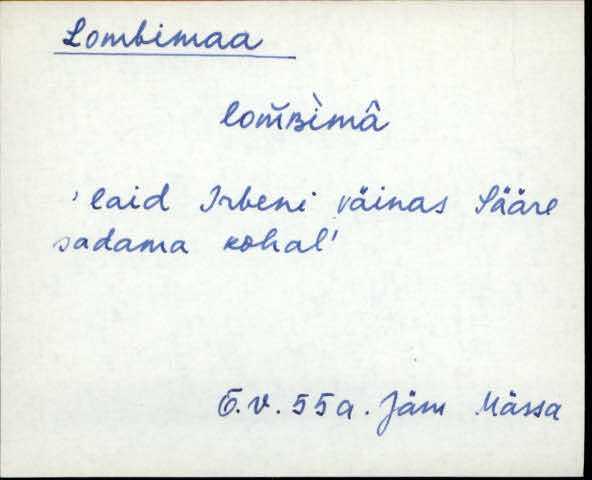 Lombimaa
lom̆ʙìmâ
'laid Irbeni väinas Sääre
sadama kohal'
E.V. 55a. Jäm Mässa